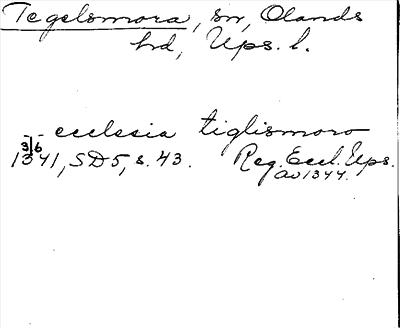 Tegelsmora, sn, Olands
hd, Ups. l.
- ecclesia tiglismoro
3/6
1341, SD5, s. 43. Reg. Eccl. Ups.
av 1344.